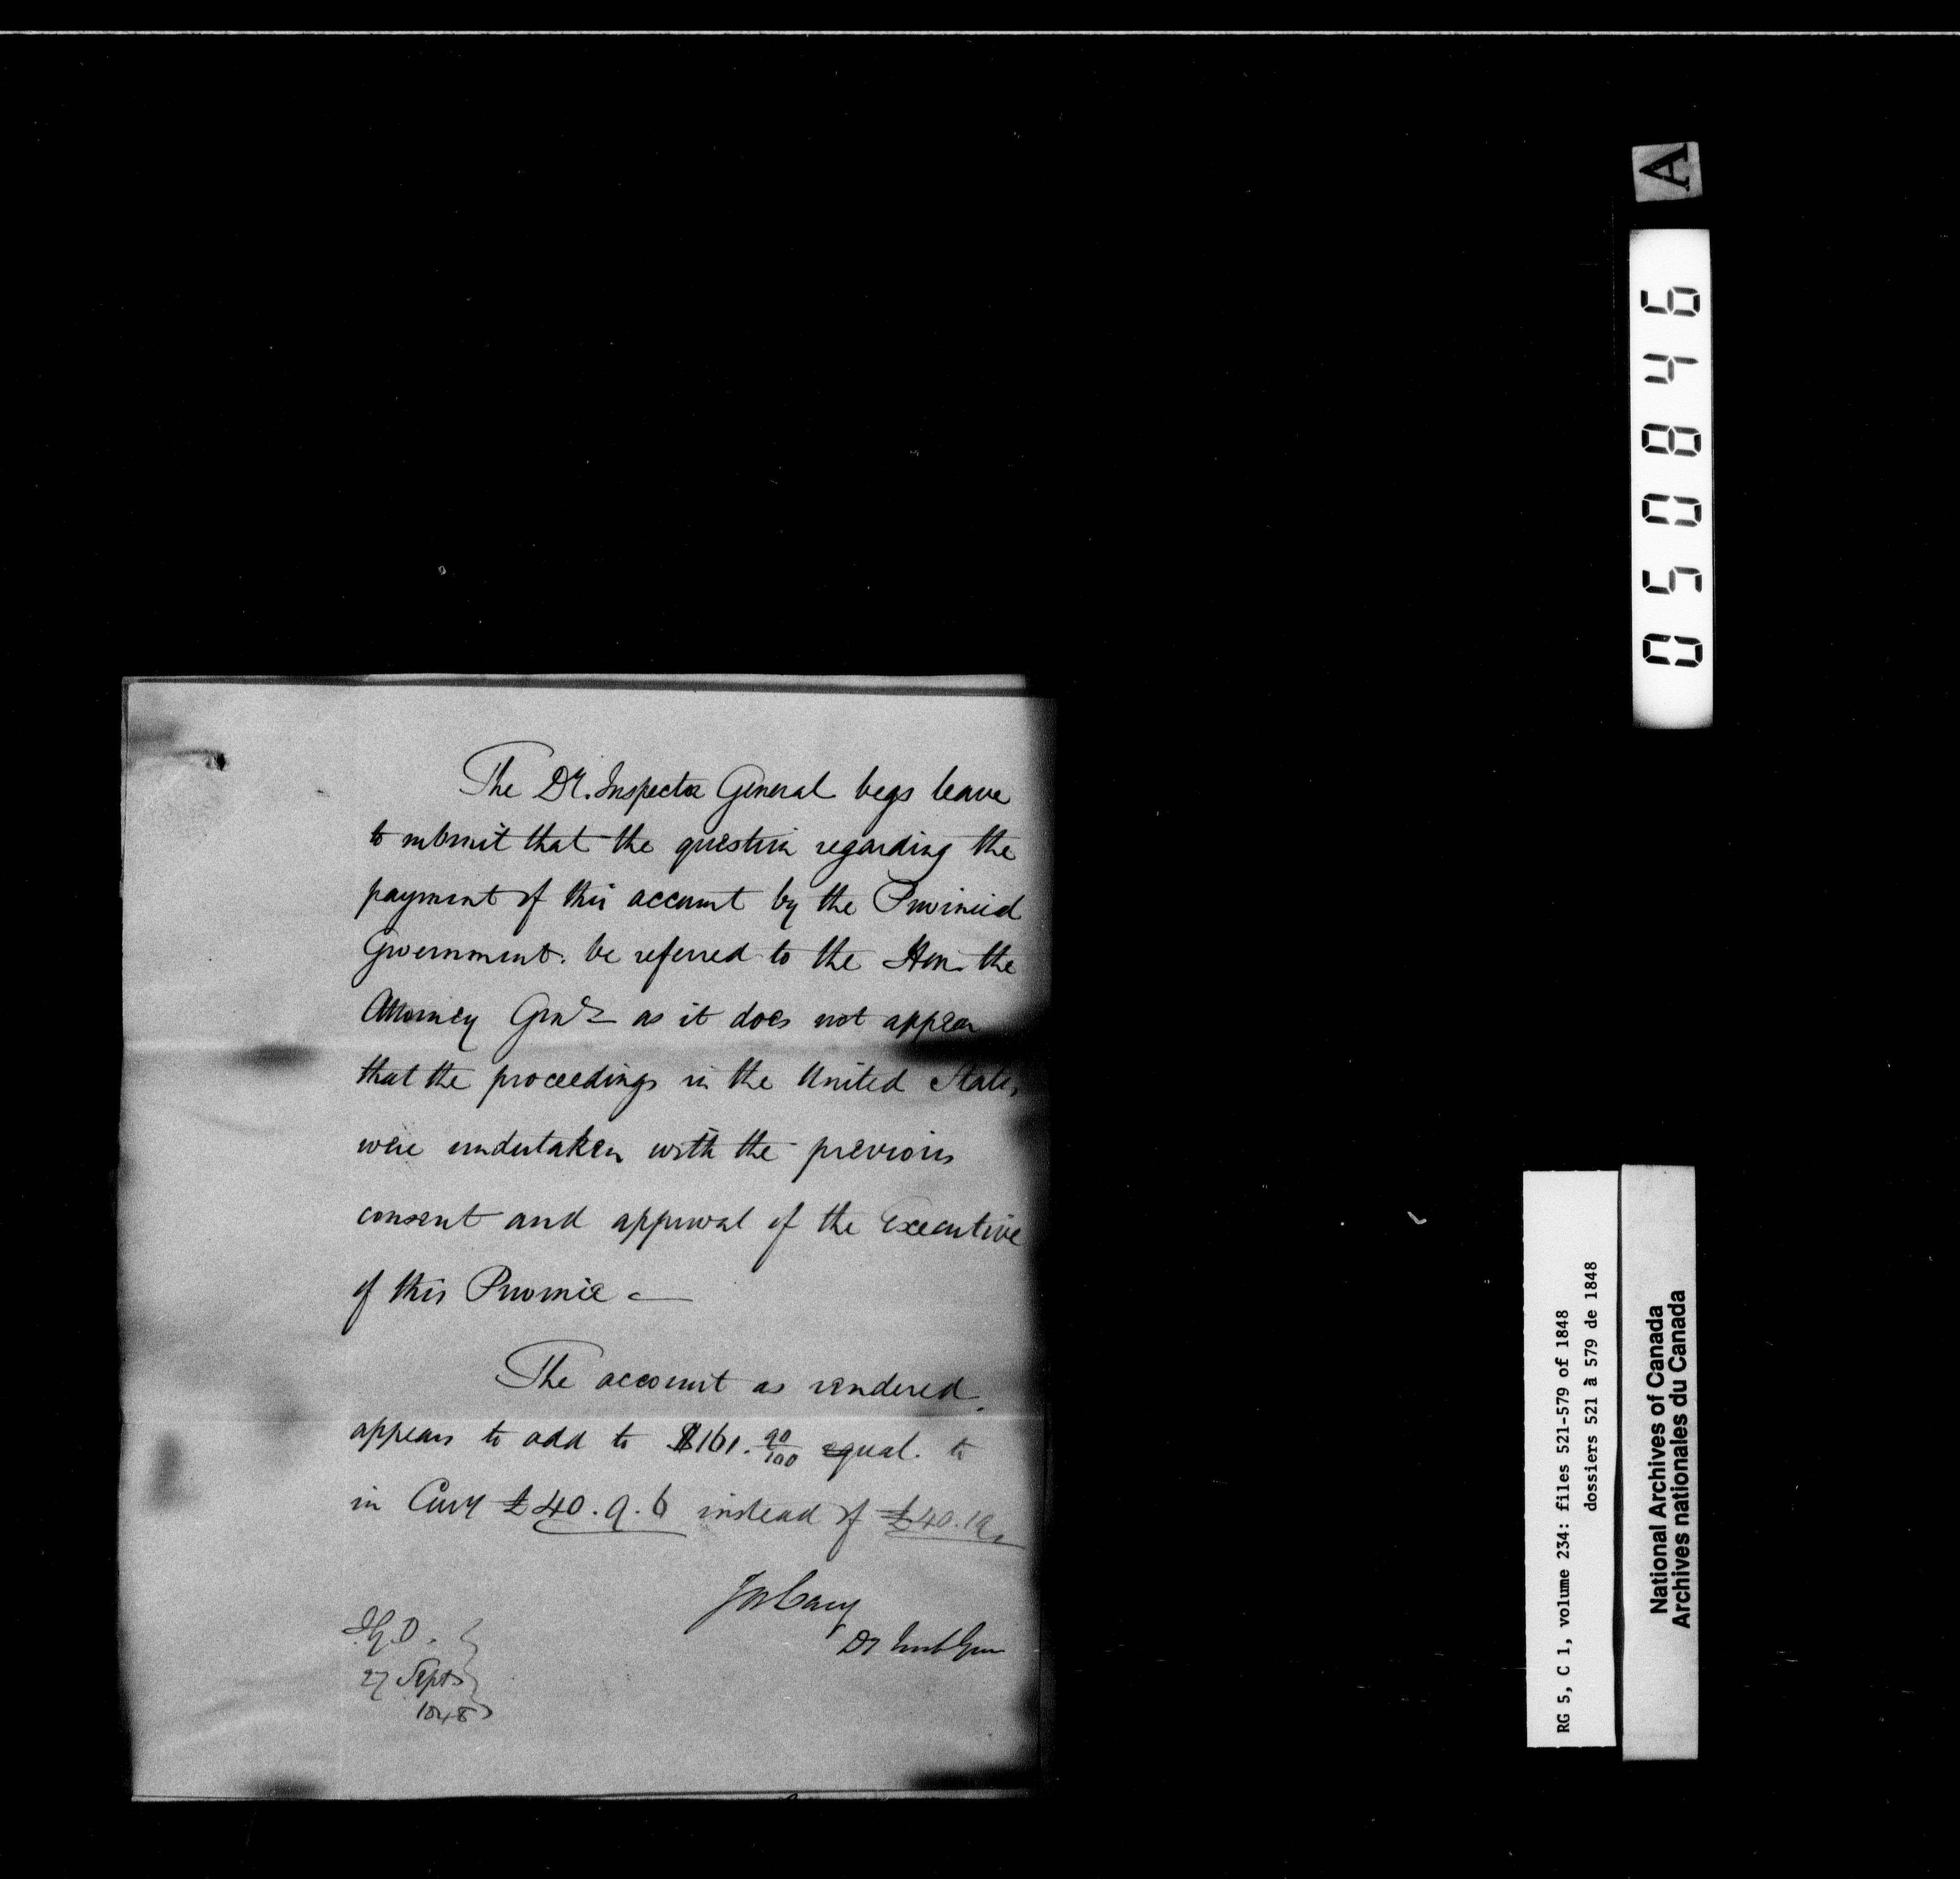 The Dy. Inspector General begs leave
to submit that the question regarding the
payment of this account by the Provincial
Government. be referred to the Hon. the
Attorney Genl as it does not appear
that the proceedings in the United States,
were undertaken with the previous
consent and approval of the Executive
of this Province —
The account as rendered
appears to add to $161. 90/100 equal. to
in Curry £40. 9. 6 instead of £40. 19.
Jos Cary
Dy Insp Gen
I.G.O.
27 Septr
1848
A
050846
RG 5, C 1, volume 234: files 521-579 of 1848
dossiers 521 à 579 de 1848
National Archives of Canada
Archives nationales du Canada